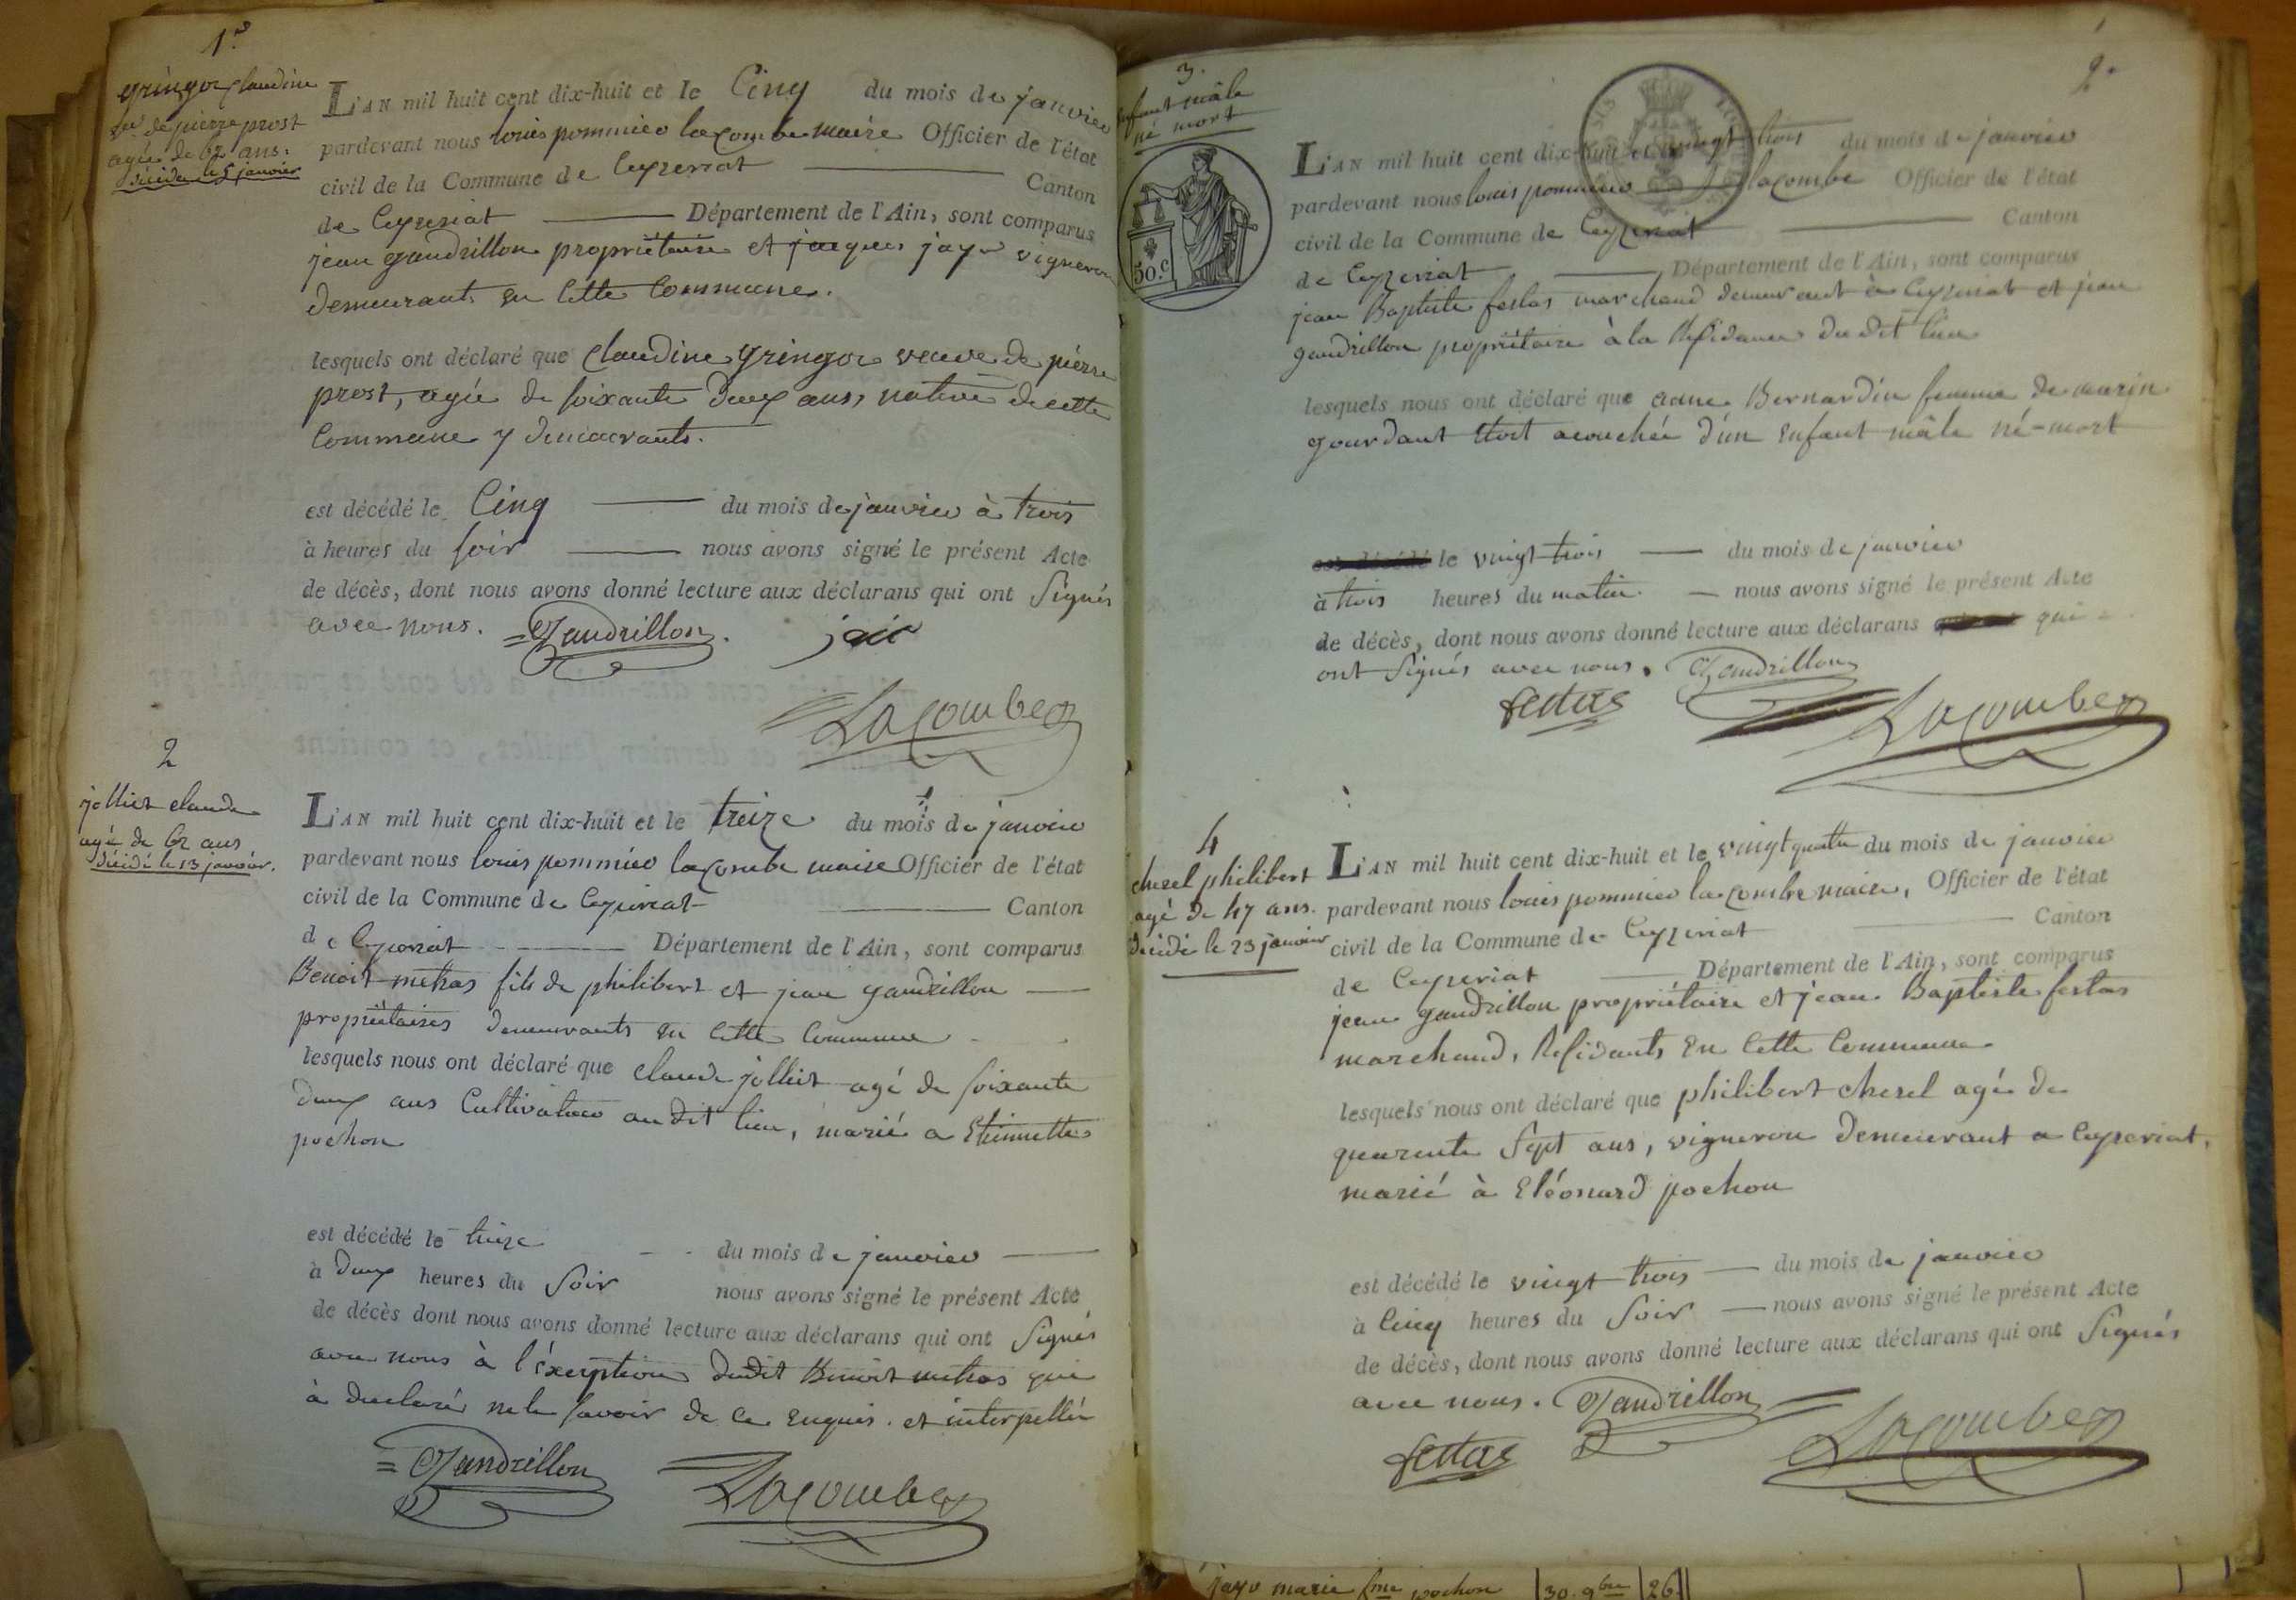 1.er
gringoz claudine
vve de pierre prost
agée de 62 ans.
décédée le 5 janvier
L'AN mil huit cent dix-huit et le Cinq du mois de janvier
pardevant nous louis pommier lacombe maire Officier de l'état
civil de la Commune de Ceyzeriat Canton
de Ceyzeriat Département de l'Ain, sont comparus
jean gandrillon propriétaire et jacques jayr vigneron
demeurants en Cette Commune.
lesquels ont déclaré que claudine gringoz veuve de pierre
prost, agée de soixante deux ans, native de cette
Commune y demeurants.
est décédé le Cinq du mois de janvier à trois
à heures du soir nous avons signé le présent Acte
de décès, dont nous avons donné lecture aux déclarans qui ont signés
avec nous. Gandrillon. jair
Lacombe
2
jolliet claude
agé de 62 ans
décédé le 13 janvier.
L'AN mil huit cent dix-huit et le treize du mois de janvier
pardevant nous louis pommier lacombe maire Officier de l'état
civil de la Commune de Ceyzeriat Canton
de Ceyzeriat Département de l'Ain, sont comparus
Benoit metras fils de philibert et jean gandrillon
propriétaires demeurants en Cette Commune
lesquels nous ont déclaré que claude jolliet agé de soixante
deux ans Cultivateur audit lieu, marié a Etiennette
pochon
est décédé le treize du mois de janvier
à deux heures du soir nous avons signé le présent Acte
de décès dont nous avons donné lecture aux déclarans qui ont signés
avec nous à l'éxception dudit Benoit metras qui
à declaré ne le savoir de ce enquis. et interpellé
Gandrillon Lacombe
2.
3.
enfant mâle
né mort
50.c
L'AN mil huit cent dix-huit et le vingt trois du mois de janvier
pardevant nous louis pommier lacombe Officier de l'état
civil de la Commune de Ceyzeriat Canton
de Ceyzeriat Département de l'Ain, sont comparus
jean Baptiste festas marchand demeurant a Ceyzeriat et jean
gandrillon propriétaire à la Résidance du dit lieu
lesquels nous ont déclaré que anne Bernardin femme de marin
gourdant etoit acouchée d'un enfant mâle né-mort
est décédé le vingt trois du mois de janvier
à trois heures du matin. nous avons signé le présent Acte
de décès, dont nous avons donné lecture aux déclarans qui
ont signés avec nous. Gandrillon
festas Lacombe
4
chezel philibert
agé de 47 ans.
décédé le 23 janvier
L'AN mil huit cent dix-huit et le vingt quatre du mois de janvier
pardevant nous louis pommier lacombe maire, Officier de l'état
civil de la Commune de Ceyzeriat Canton
de Ceyzeriat Département de l'Ain, sont comparus
jean gandrillon propriétaire et jean Baptiste festas
marchand, Résidants en Cette Commune
lesquels nous ont déclaré que philibert chezel agé de
quarente sept ans, vigneron demeurant a Ceyzeriat,
marié à Eléonard pochon
est décédé le vingt trois du mois de janvier
à Cinq heures du soir nous avons signé le présent Acte
de décès, dont nous avons donné lecture aux déclarans qui ont signés
avec nous. Gandrillon
festas Lacombe
jayr marie fme pochon 30. 9bre 26